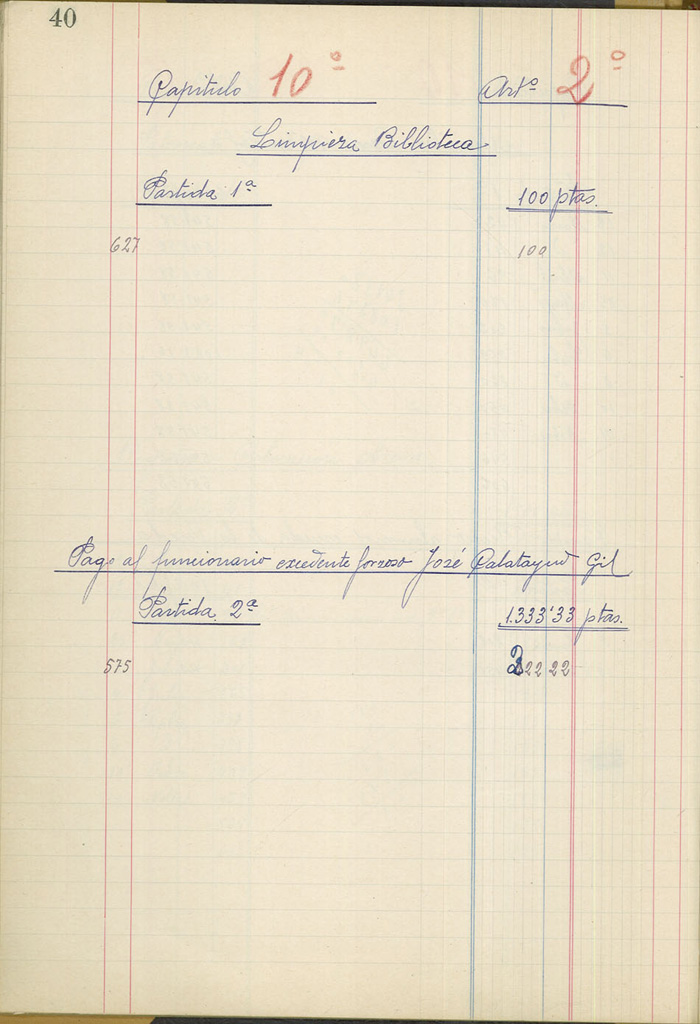 40
Capítulo 10º Artº 2º
Limpieza Biblioteca
Partida 1ª 100 ptas.
627 100
Pago al funcionario excedente forzoso José Calatayud Gil
Partida 2ª 1.333'33 ptas.
575 222 22